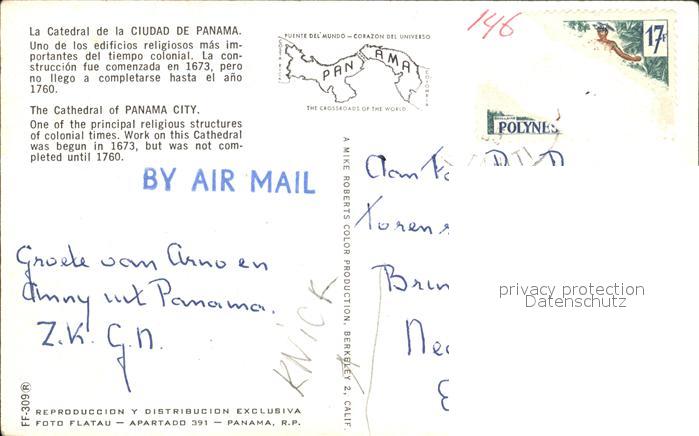 La Catedral de la CIUDAD DE PANAMA.
Uno de los edificios religiosos más im-
portantes del tiempo colonial. La con-
strucción fue comenzada en 1673, pero
no llego a completarse hasta el año
1760.
The Cathedral of PANAMA CITY.
One of the principal religious structures
of colonial times. Work on this Cathedral
was begun in 1673, but was not com-
pleted until 1760.
PUENTE DEL MUNDO — CORAZON DEL UNIVERSO
PANAMA
THE CROSSROADS OF THE WORLD
146
17F
POLYNES
BY AIR MAIL
Groete van Arno en
Anny uit Panama.
Z.K. G.N.
KNICK
A MIKE ROBERTS COLOR PRODUCTION, BERKELEY 2, CALIF.
Aan
Toren
Brun
Ned
privacy protection
Datenschutz
FF-309®
REPRODUCCION Y DISTRIBUCION EXCLUSIVA
FOTO FLATAU — APARTADO 391 — PANAMA, R.P.